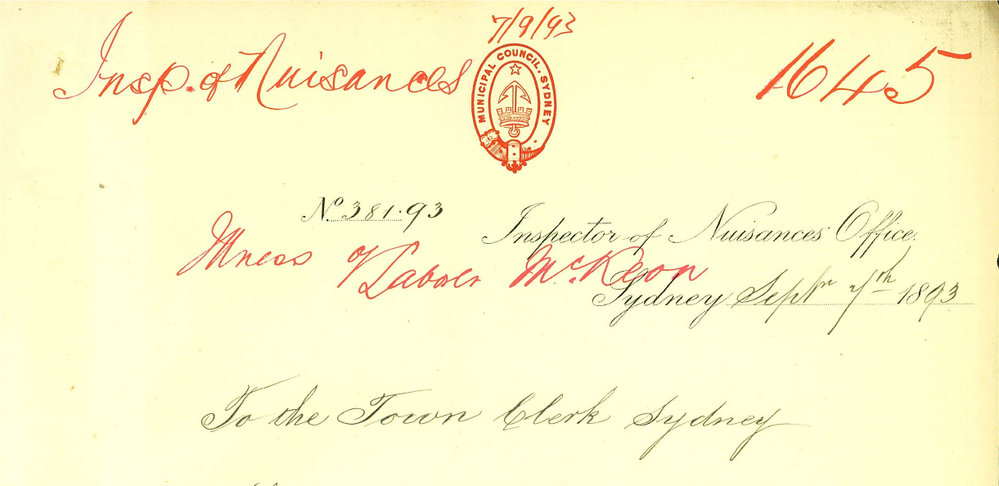 7/9/93
Insp. of Nuisances
MUNICIPAL COUNCIL. SYDNEY
1645
No. 381.93
Inspector of Nuisances Office,
Illness of Laborer McKeon
Sydney Septr 7th 1893
To the Town Clerk Sydney